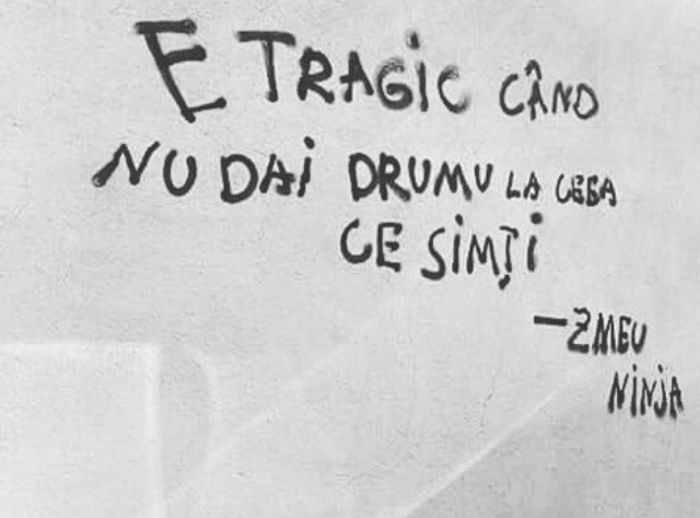 E TRAGiC CÂND
NU DAi DRUMU LA CEEA
CE SiMȚi
– ZMEU
NiNJA